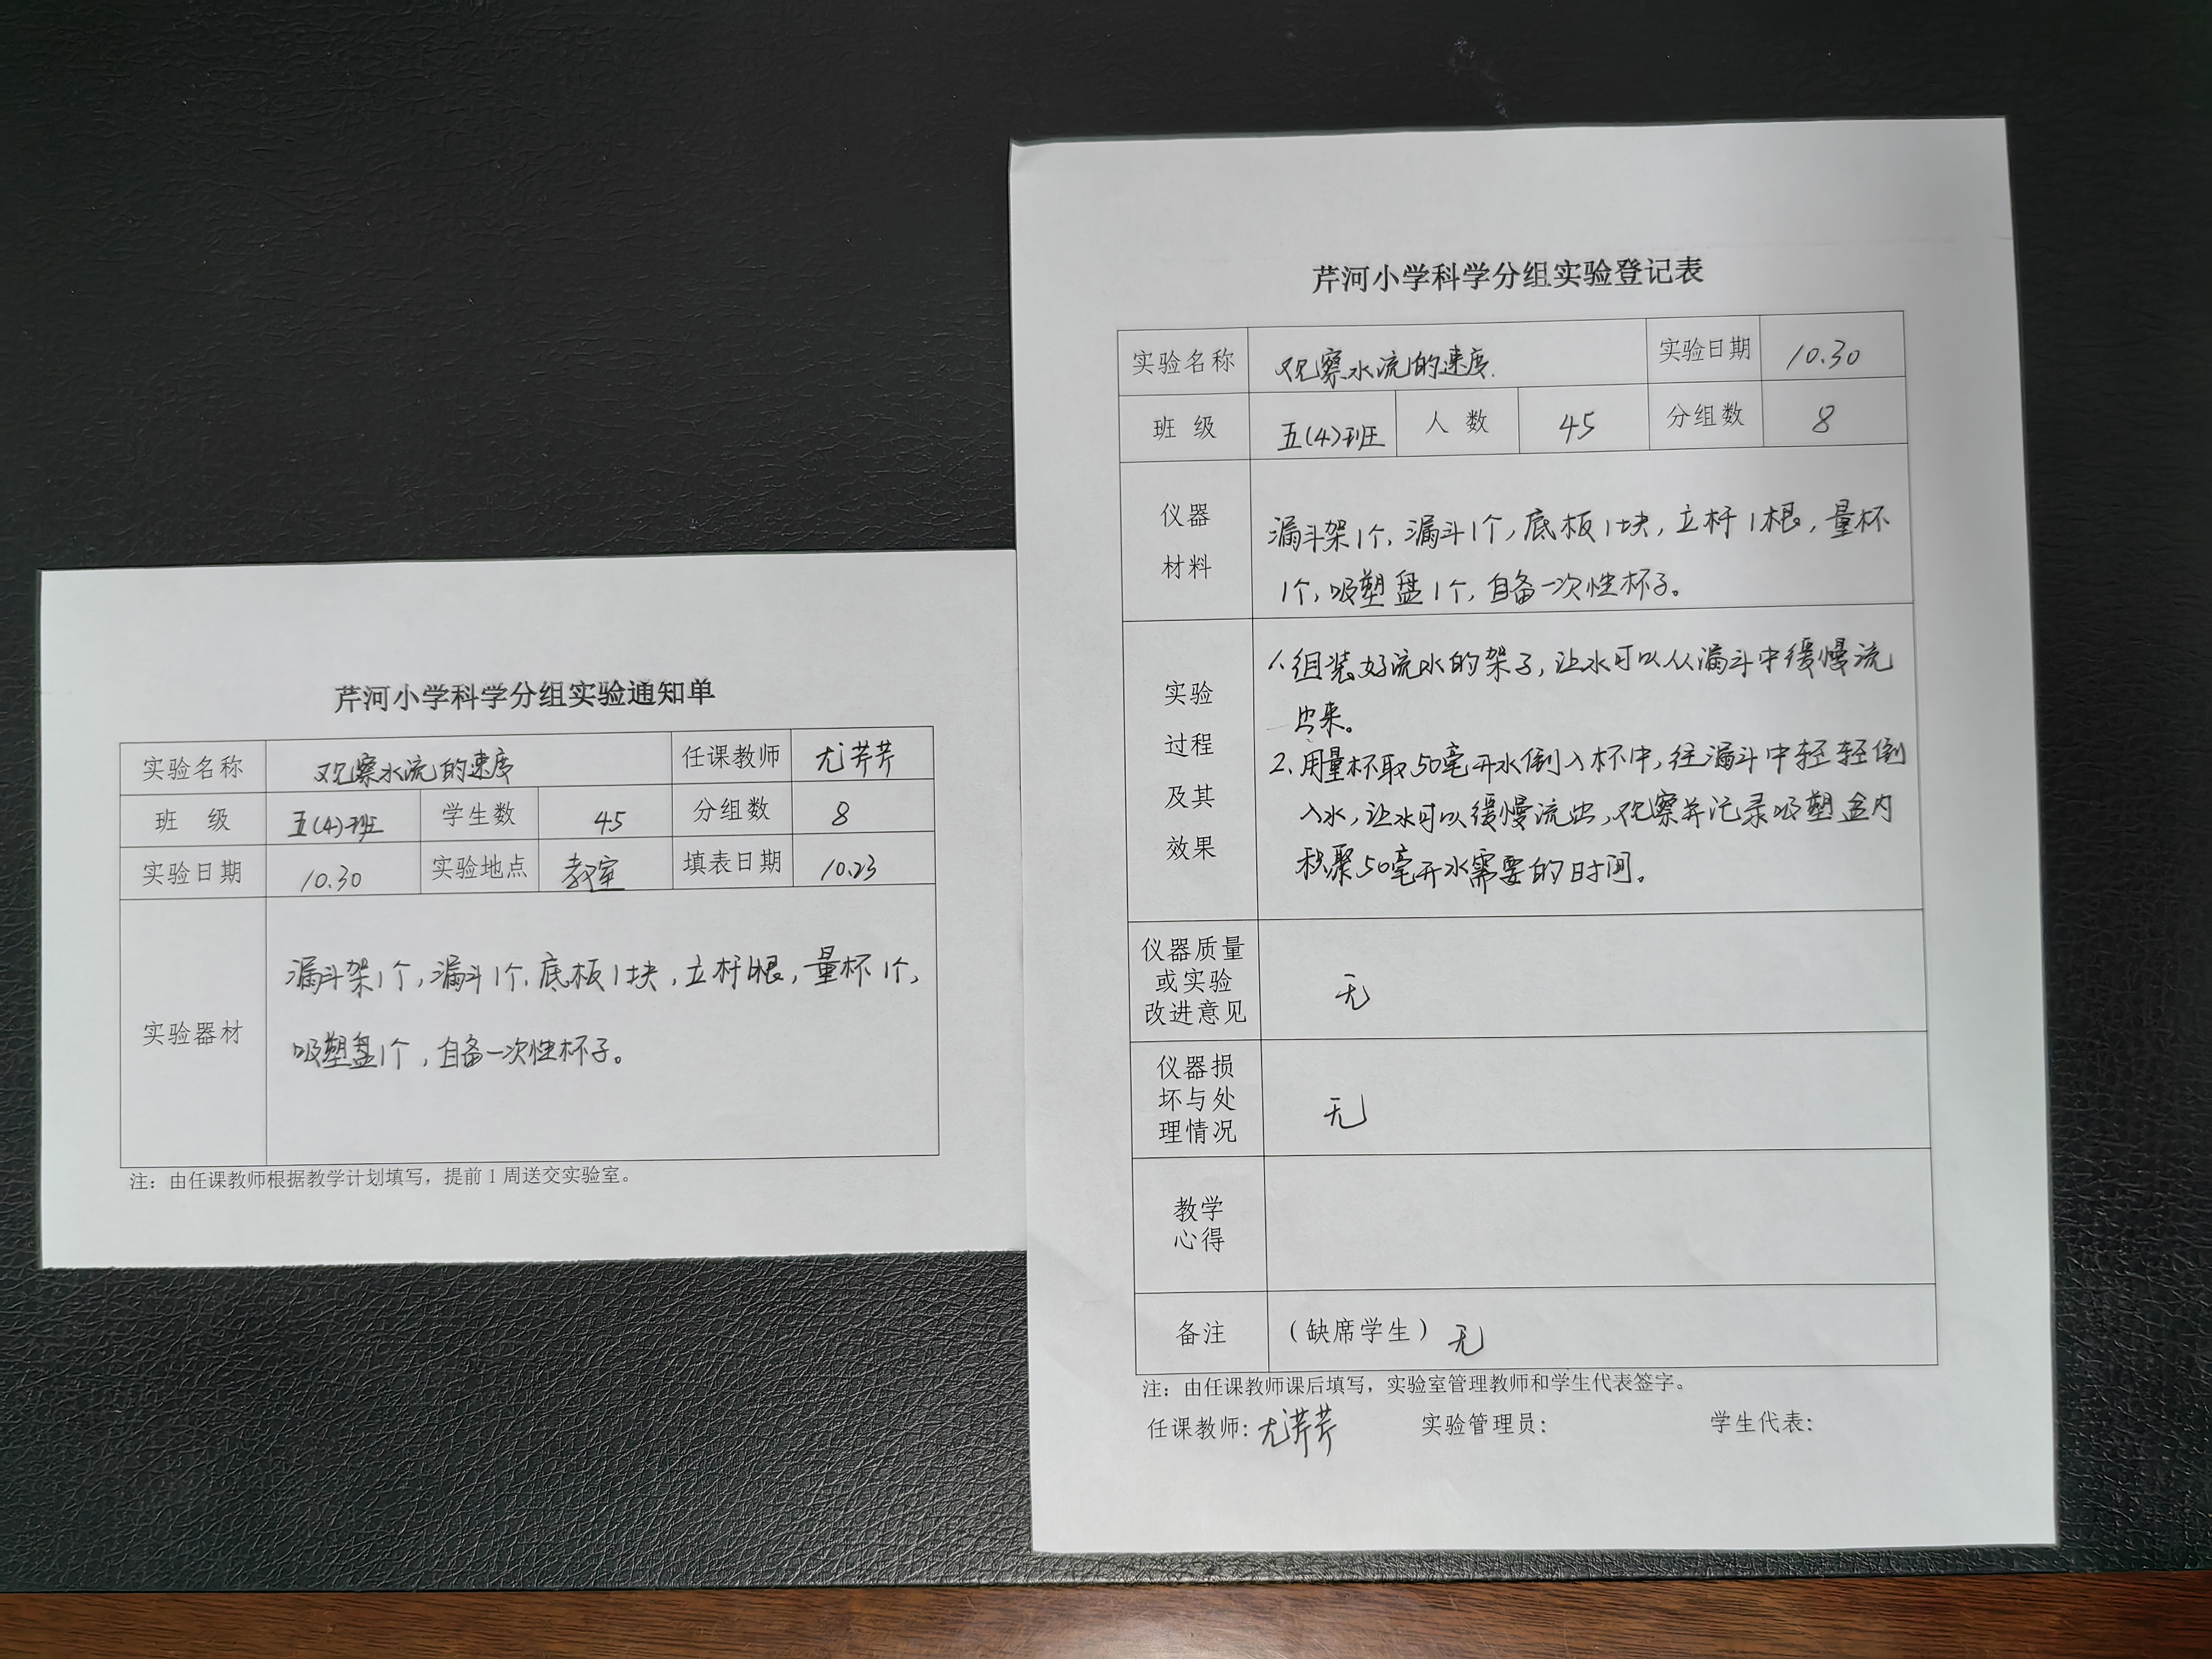 芹河小学科学分组实验通知单
实验名称 观察水流的速度 任课教师 尤芹芹
班 级 五(4)班 学生数 45 分组数 8
实验日期 10.30 实验地点 教室 填表日期 10.23
实验器材
漏斗架1个,漏斗1个,底板1块,立杆1根,量杯1个,
吸塑盘1个,自备一次性杯子。
注:由任课教师根据教学计划填写,提前1周送交实验室。
芹河小学科学分组实验登记表
实验名称 观察水流的速度. 实验日期 10.30
班 级 五(4)班 人 数 45 分组数 8
仪器
材料
漏斗架1个,漏斗1个,底板1块,立杆1根,量杯
1个,吸塑盘1个,自备一次性杯子。
实验
过程
及其
效果
1.组装好流水的架子,让水可以从漏斗中缓慢流
出来。
2.用量杯取50毫升水倒入杯中,往漏斗中轻轻倒
入水,让水可以缓慢流出,观察并记录吸塑盒内
积聚50毫升水需要的时间。
仪器质量
或实验
改进意见
无
仪器损
坏与处
理情况
无
教学
心得
备注 (缺席学生) 无
注:由任课教师课后填写,实验室管理教师和学生代表签字。
任课教师:尤芹芹 实验管理员: 学生代表: